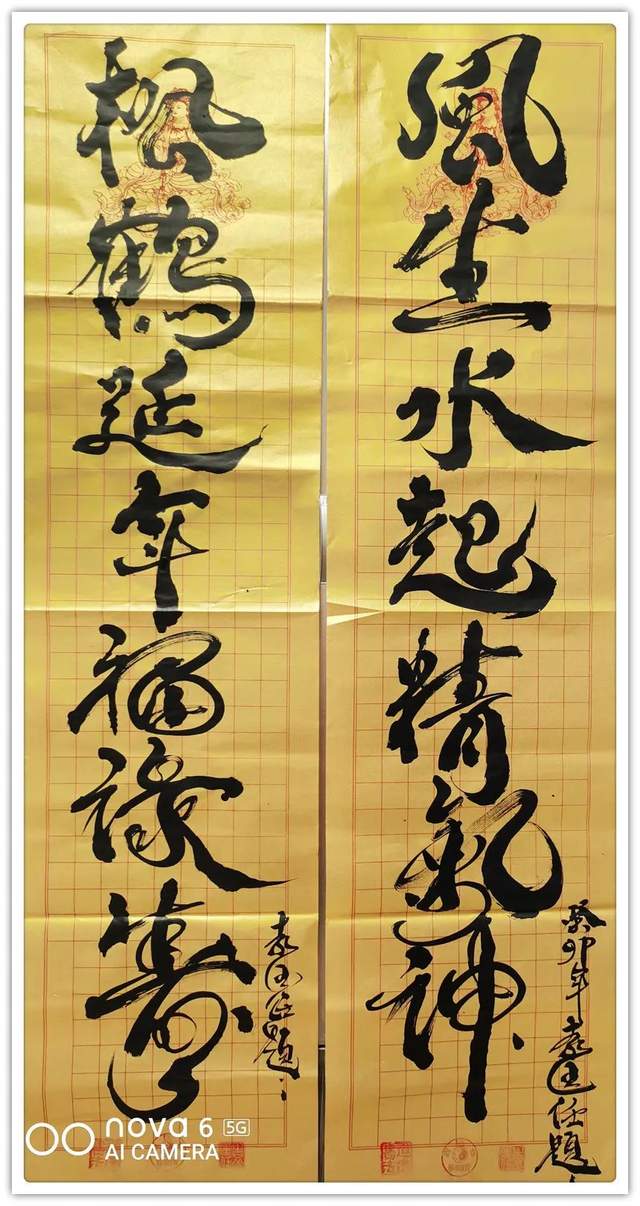 風生水起精氣神
癸卯年
任題
松鶴延年福祿壽
題
nova 6 5G
AI CAMERA